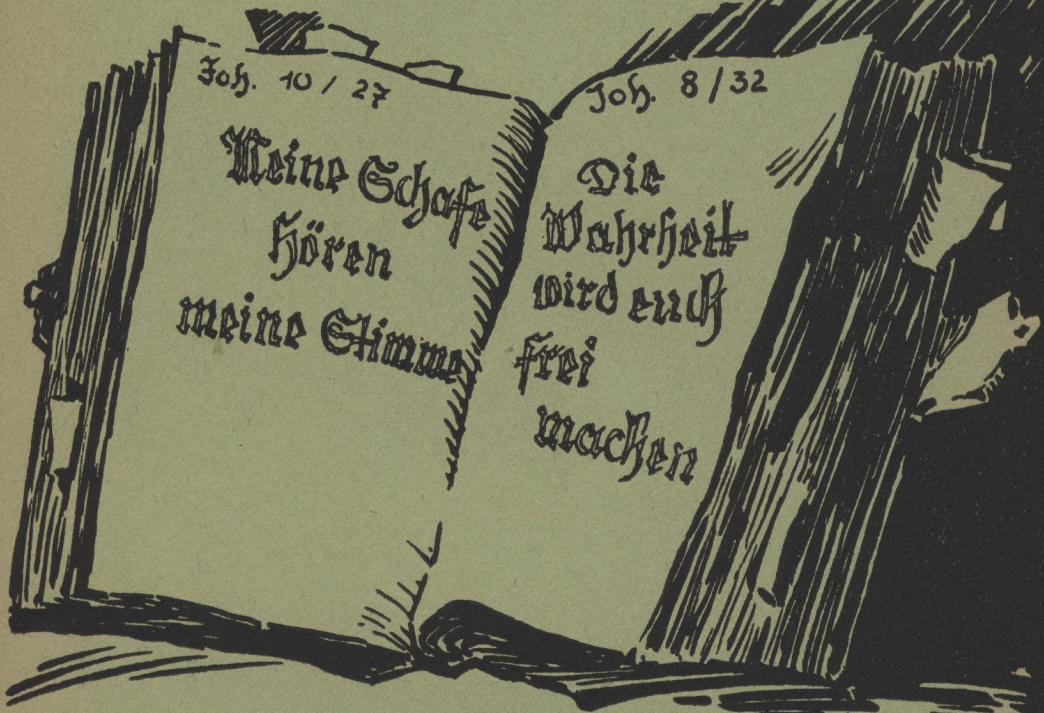 Joh. 10 / 27
Meine Schafe
hören
meine Stimme
Joh. 8 / 32
Die
Wahrheit
wird euch
frei
machen